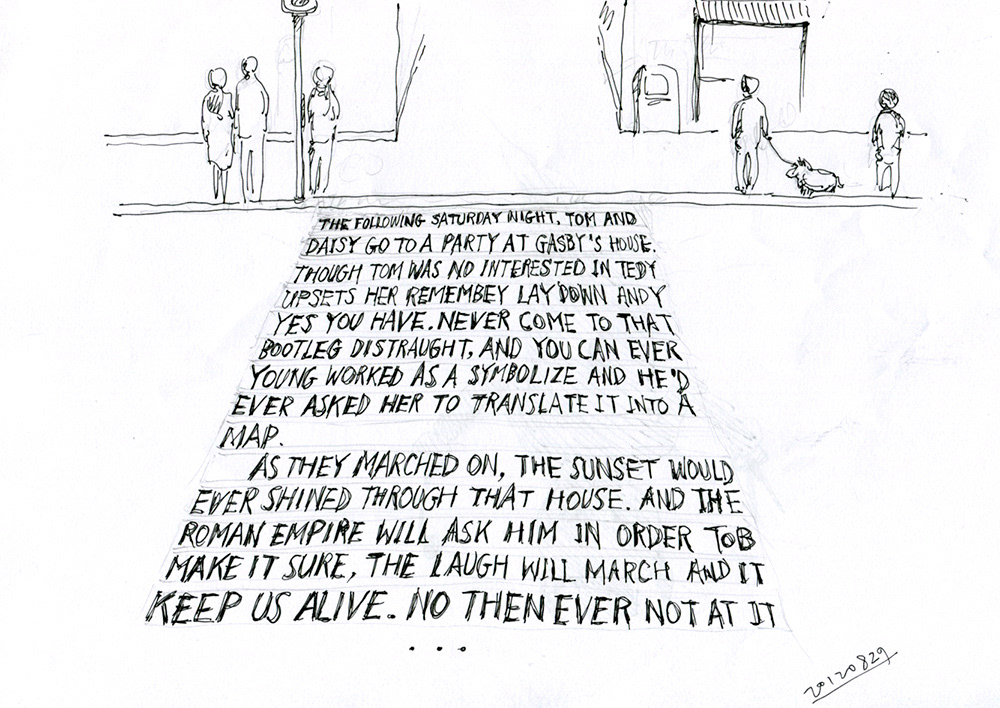 THE FOLLOWING SATURDAY NIGHT, TOM AND
DAISY GO TO A PARTY AT GASBY'S HOUSE.
THOUGH TOM WAS NO INTERESTED IN TEDY
UPSETS HER REMEMBEY LAY DOWN ANDY
YES YOU HAVE. NEVER COME TO THAT
BOOTLEG DISTRAUGHT, AND YOU CAN EVER
YOUNG WORKED AS A SYMBOLIZE AND HE'D
EVER ASKED HER TO TRANSLATE IT INTO A
MAP.
AS THEY MARCHED ON, THE SUNSET WOULD
EVER SHINED THROUGH THAT HOUSE. AND THE
ROMAN EMPIRE WILL ASK HIM IN ORDER TOB
MAKE IT SURE, THE LAUGH WILL MARCH AND IT
KEEP US ALIVE. NO THEN EVER NOT AT IT
...
20120829